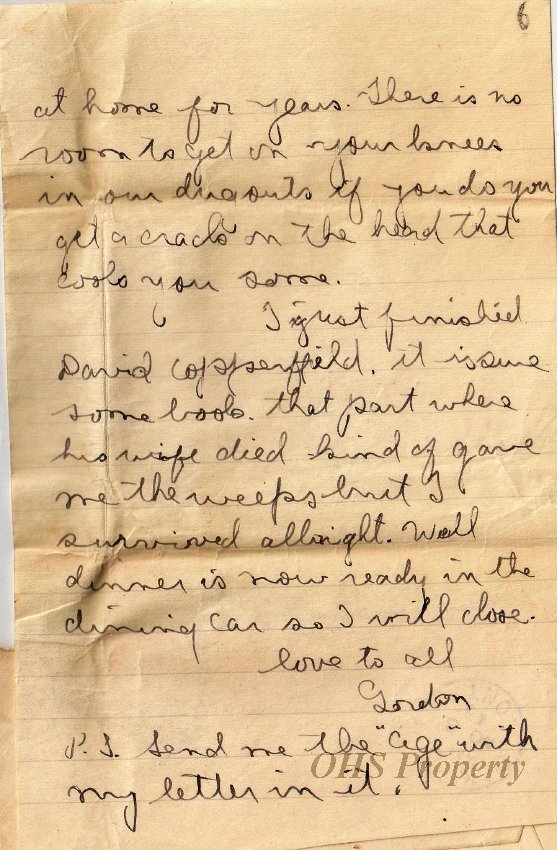 6
at home for years. There is no
room to get on your knees
in our dugouts if you do you
get a crack on the head that
cools you some.
I just finished
David Copperfield. it is sure
some book. that part where
his wife died kind of gave
me the weeps but I
survived allright. Well
dinner is now ready in the
dining car so I will close.
love to all
Gordon
P.S. Send me the "Age" with
my letter in it.
OHS Property